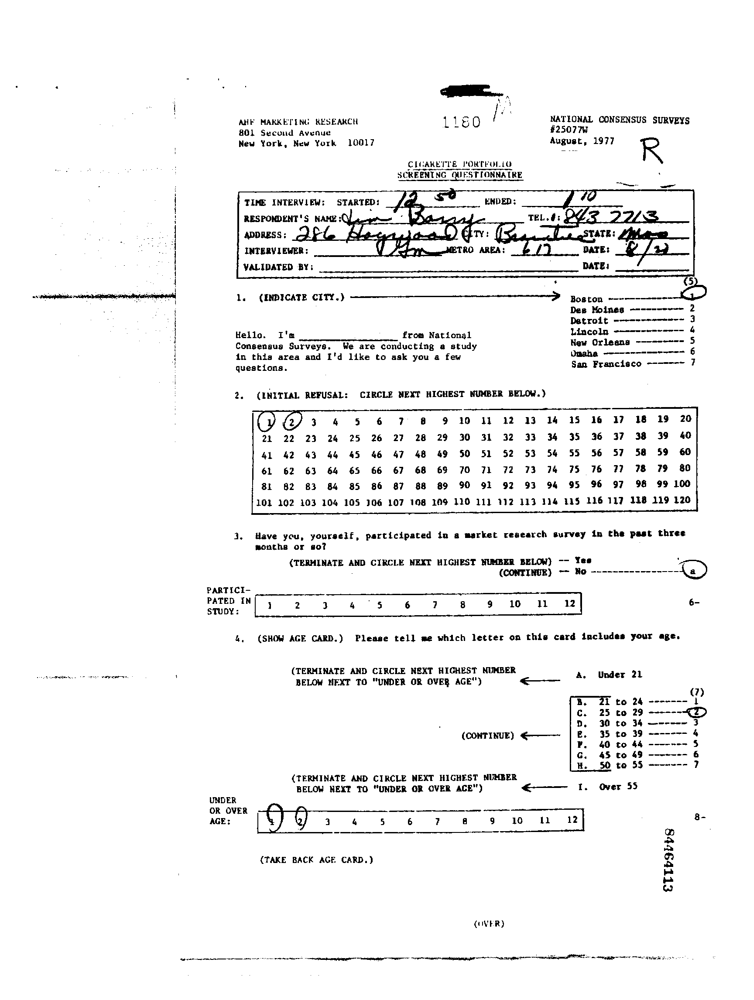 1180 M
AHF MARKETING RESEARCH
801 Second Avenue
New York, New York 10017
NATIONAL CONSENSUS SURVEYS
#25077W
August, 1977
R
CIGARETTE PORTFOLIO
SCREENING QUESTIONNAIRE
TIME INTERVIEW: STARTED: 12 50 ENDED: 1 10
RESPONDENT'S NAME: Jim Barry TEL.#: 843 7713
ADDRESS: 286 CITY: STATE: Mass
INTERVIEWER: METRO AREA: 617 DATE: 8/23
VALIDATED BY: DATE:
(5)
1. (INDICATE CITY.) Boston 1
Des Moines 2
Detroit 3
Lincoln 4
New Orleans 5
Omaha 6
San Francisco 7
Hello. I'm from National
Consensus Surveys. We are conducting a study
in this area and I'd like to ask you a few
questions.
2. (INITIAL REFUSAL: CIRCLE NEXT HIGHEST NUMBER BELOW.)
1 2 3 4 5 6 7 8 9 10 11 12 13 14 15 16 17 18 19 20
21 22 23 24 25 26 27 28 29 30 31 32 33 34 35 36 37 38 39 40
41 42 43 44 45 46 47 48 49 50 51 52 53 54 55 56 57 58 59 60
61 62 63 64 65 66 67 68 69 70 71 72 73 74 75 76 77 78 79 80
81 82 83 84 85 86 87 88 89 90 91 92 93 94 95 96 97 98 99 100
101 102 103 104 105 106 107 108 109 110 111 112 113 114 115 116 117 118 119 120
3. Have you, yourself, participated in a market research survey in the past three
months or so?
(TERMINATE AND CIRCLE NEXT HIGHEST NUMBER BELOW) -- Yes
(CONTINUE) -- No a
PARTICI-
PATED IN
STUDY: 1 2 3 4 5 6 7 8 9 10 11 12 6-
4. (SHOW AGE CARD.) Please tell me which letter on this card includes your age.
(TERMINATE AND CIRCLE NEXT HIGHEST NUMBER
BELOW NEXT TO "UNDER OR OVER AGE") A. Under 21
(7)
B. 21 to 24 1
C. 25 to 29 2
D. 30 to 34 3
(CONTINUE) E. 35 to 39 4
F. 40 to 44 5
G. 45 to 49 6
H. 50 to 55 7
(TERMINATE AND CIRCLE NEXT HIGHEST NUMBER
BELOW NEXT TO "UNDER OR OVER AGE") I. Over 55
UNDER
OR OVER
AGE: 1 2 3 4 5 6 7 8 9 10 11 12 8-
(TAKE BACK AGE CARD.)
84464113
(OVER)